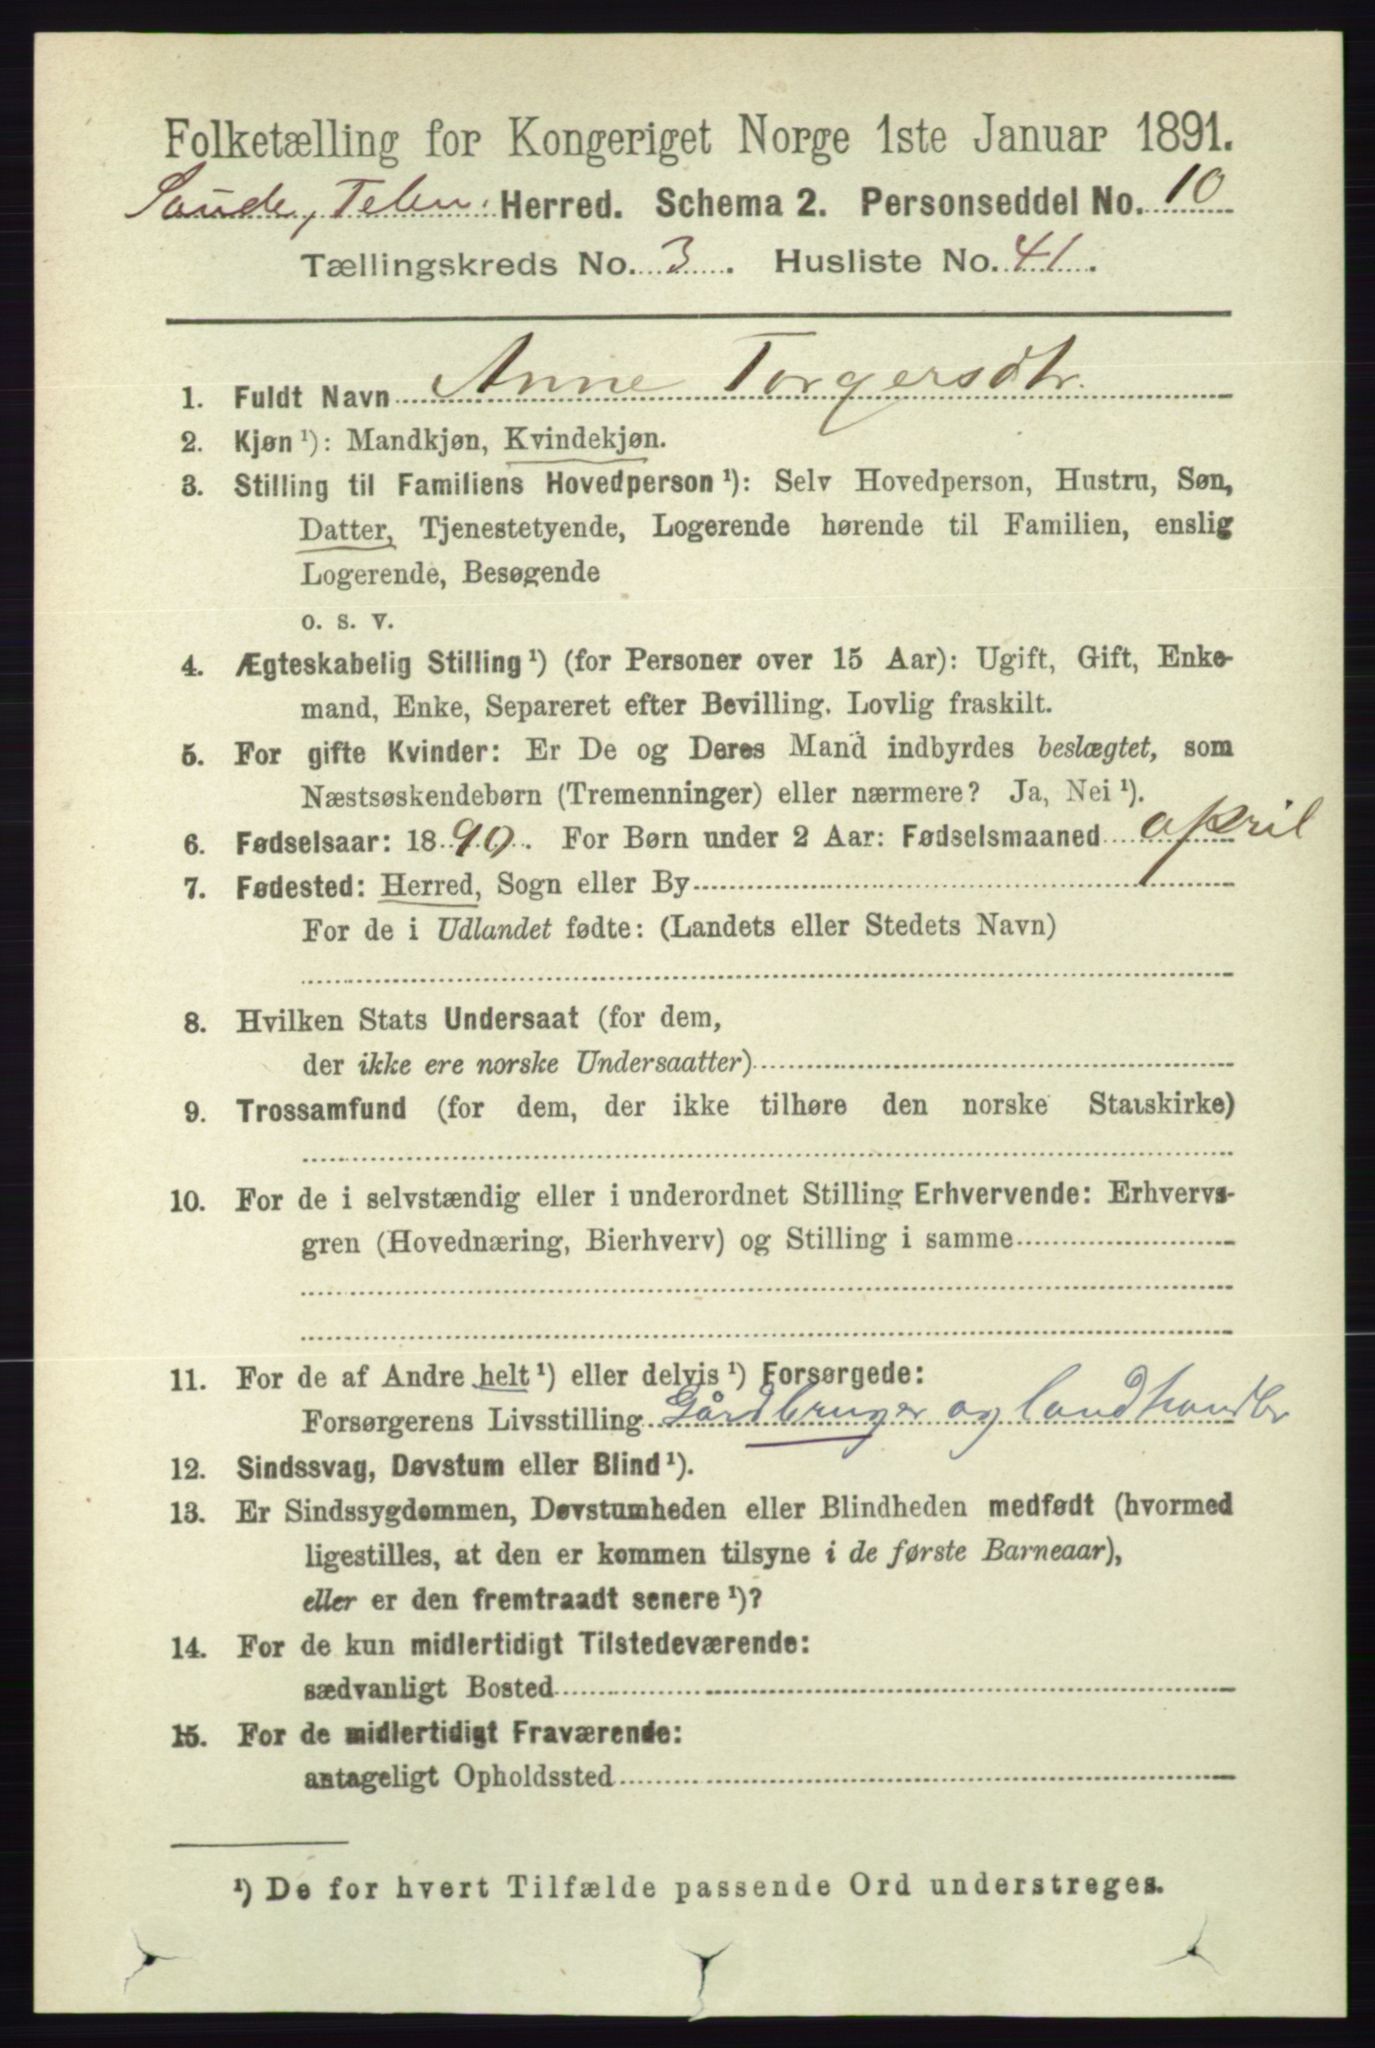 Folketælling for Kongeriget Norge 1ste Januar 1891.
Saude, Telem. Herred. Schema 2. Personseddel No. 10
Tællingskreds No. 3. Husliste No. 41.
1. Fuldt Navn Anne Torgersdtr.
2. Kjøn¹): Mandkjøn, Kvindekjøn.
3. Stilling til Familiens Hovedperson¹): Selv Hovedperson, Hustru, Søn,
Datter, Tjenestetyende, Logerende hørende til Familien, enslig
Logerende, Besøgende
o. s. v.
4. Ægteskabelig Stilling¹) (for Personer over 15 Aar): Ugift, Gift, Enke-
mand, Enke, Separeret efter Bevilling. Lovlig fraskilt.
5. For gifte Kvinder: Er De og Deres Mand indbyrdes beslægtet, som
Næstsøskendebørn (Tremenninger) eller nærmere? Ja, Nei¹).
6. Fødselsaar: 1890. For Børn under 2 Aar: Fødselsmaaned april
7. Fødested: Herred, Sogn eller By
For de i Udlandet fødte: (Landets eller Stedets Navn)
8. Hvilken Stats Undersaat (for dem,
der ikke ere norske Undersaatter)
9. Trossamfund (for dem, der ikke tilhøre den norske Statskirke)
10. For de i selvstændig eller i underordnet Stilling Erhvervende: Erhvervs-
gren (Hovednæring, Bierhverv) og Stilling i samme
11. For de af Andre helt¹) eller delvis¹) Forsørgede:
Forsørgerens Livsstilling Gårdbruger og landhandler
12. Sindssvag, Døvstum eller Blind¹).
13. Er Sindssygdommen, Døvstumheden eller Blindheden medfødt (hvormed
ligestilles, at den er kommen tilsyne i de første Barneaar),
eller er den fremtraadt senere¹)?
14. For de kun midlertidigt Tilstedeværende:
sædvanligt Bosted
15. For de midlertidigt Fraværende:
antageligt Opholdssted
¹) De for hvert Tilfælde passende Ord understreges.